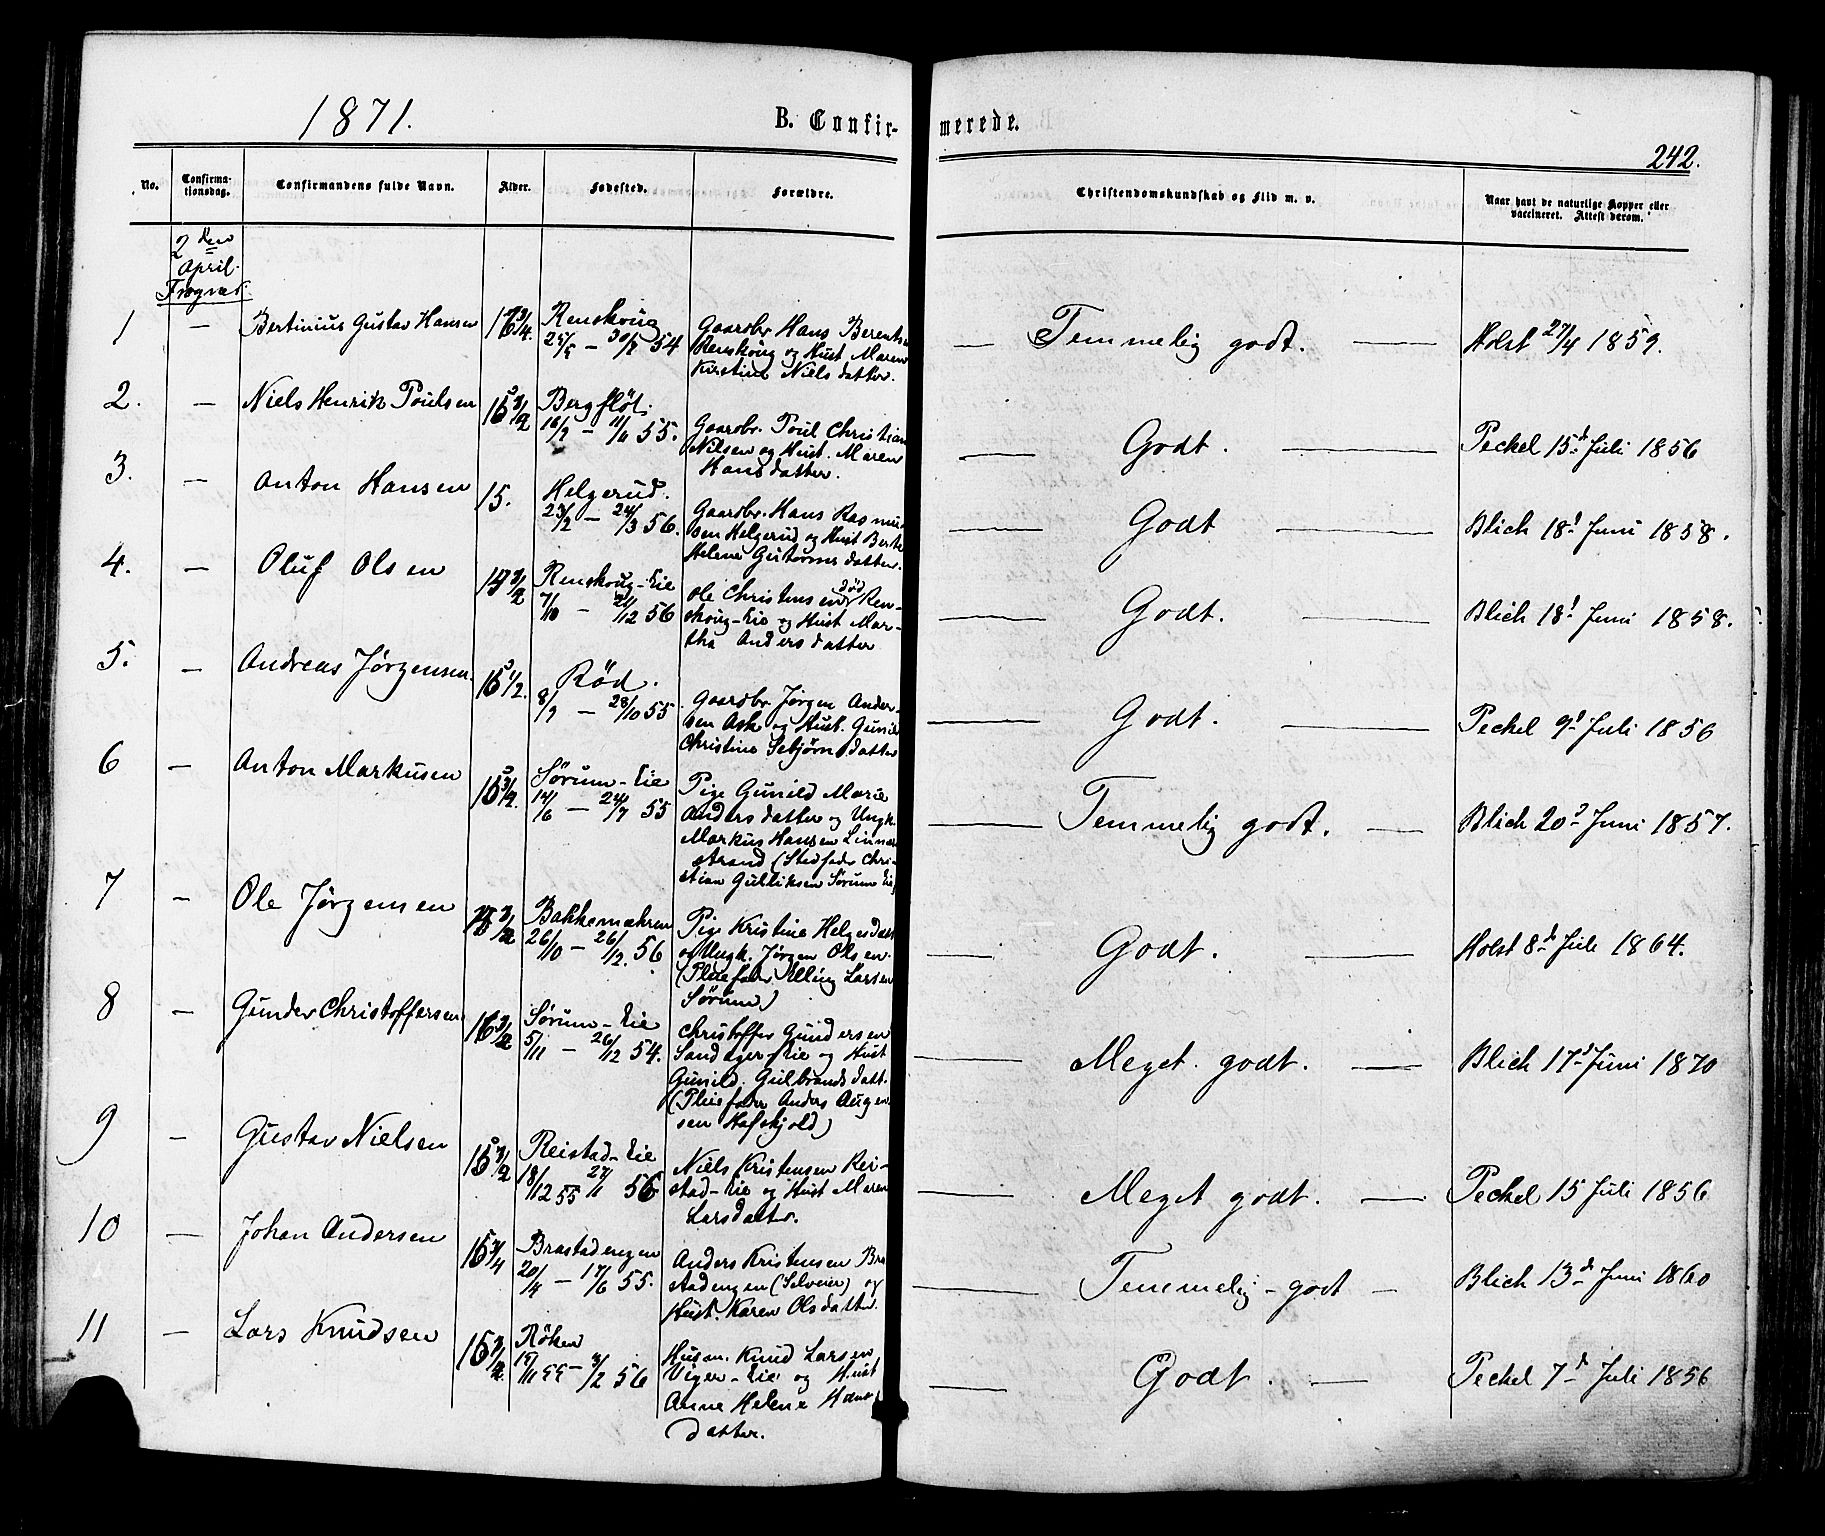 1871.
B. Confirmerede.
242.
No.
Confirmationsdag.
Confirmandens fulde Navn.
Alder.
Fødested.
Forældre.
Christendomskundskab og Flid m. v.
Naar havt de naturlige Kopper eller
vaccineret. Attest derom.
2den
April.
1 — Bertinius Gustav Hansen
Renskoug
54
Gaardbr Hans Berents
Renskoug og Hust Maren
Kirstine Nielsdatter.
— Temmelig godt. —
Holst 27/4 1859.
2. — Niels Henrik Poulsen
Bergfløt
55.
Gaardbr. Poul Christian
Nilsen og Hust. Maren
Hansdatter.
— Godt. —
Peckel 15d Juli 1856
3. — Anton Hansen
15.
Helgerud.
23/2 — 24/3 56.
Gaardbr. Hans Rasmu-
sen Helgerud og Hust Berte
Helene Guttormsdatter.
— Godt —
Blich 18d Juni 1858.
4. — Oluf Olsen
Renskoug-Eie
7/10 — 21/12 56
Ole Christensen død Ren-
skoug-Eie og Hust Mar-
tha Andersdatter
— Godt. —
Blich 18d Juni 1858.
5. — Andreas Jørgensen
Rød.
8/9 — 28/10 55
Gaardbr Jørgen Ander-
sen Ask og Hust. Gunild
Christine Sebjørnsdatter
— Godt. —
Peckel 9d Juli 1856
6 — Anton Markusen
Sørum-Eie
14/6 — 24/7 55
Pige Gunild Marie
Andersdatter og Ungk.
Markus Hansen Linnæs
strand (Stedfader Chri-
stian Gulliksen Sørum Eie)
— Temmelig godt. —
Blich 20d Juni 1857.
7 — Ole Jørgensen
26/10 — 26/12. 56
Pige Kristine Helgesdatt
og Ungk. Jørgen Olsen.
(Pleiefader Elling Larsen
Sørum)
— Godt. —
Holst 8de Juli 1864.
8 — Gunder Christoffersen
Sørum-Eie
5/11 — 26/12 54.
Christoffer Gundersen
Sandager-Eie og Hust
Gunild. Gulbrandsdatt.
(Pleiefader Anders Augen
sen Hafskjold)
— Meget godt. —
Blich 17d Juni 1870
9 — Gustav Nielsen
Reistad-Eie
18/12 55 27/1 56
Niels Kristensen Rei-
stad-Eie og Hust Maren
Larsdatter.
— Meget godt. —
Peckel 15 Juli 1856
10 — Johan Andersen
Brastadengen
20/4 — 17/6 55.
Anders Kristensen Bra
stadengen (Selveier) og
Hust. Karen Olsdatter.
— Temmelig godt —
Blich 13de Juni 1860
11 — Lars Knudsen
Røken
56
Husm. Knud Larsen
Viger-Eie og Hust
Anne Helene Hans
datter.
— Godt. —
Peckel 7d Juli 1856